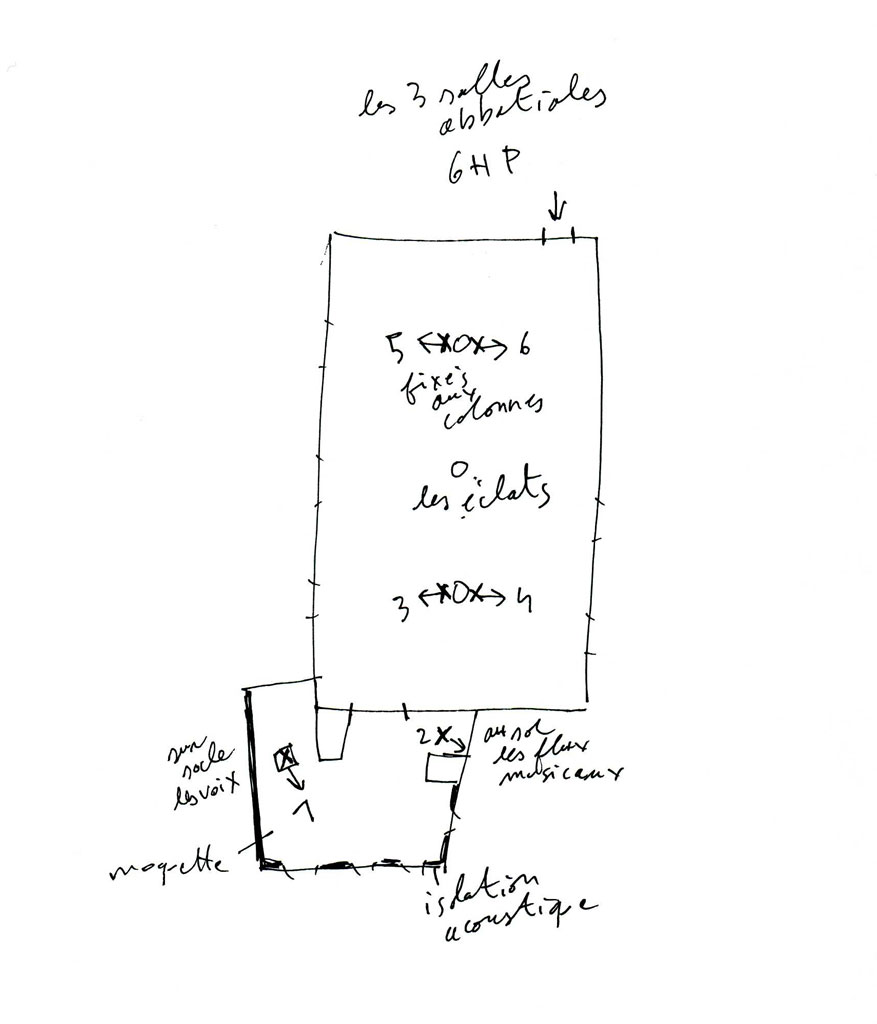 les 3 salles
abbatiales
6 HP
5 6
fixés
aux
colonnes
les éclats
3 4
sur
socle
les voix
2
au sol
les flux
musicaux
1
moquette
isolation
acoustique